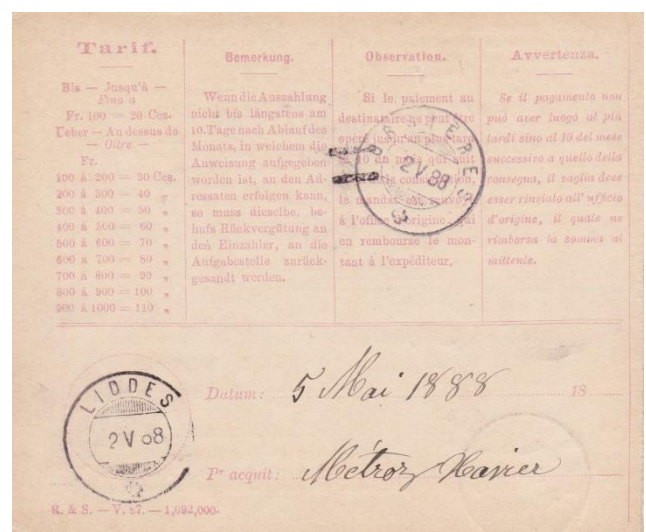 Tarif.
Bis — Jusqu'à —
Fino a
Fr. 100 = 20 Ces.
Ueber — Au dessus de
— Oltre —
Fr.
100 à 200 = 30 Ces.
200 à 300 = 40 „
300 à 400 = 50 „
400 à 500 = 60 „
500 à 600 = 70 „
600 à 700 = 80 „
700 à 800 = 90 „
800 à 900 = 100 „
900 à 1000 = 110 „
Bemerkung.
Wenn die Auszahlung
nicht bis längstens am
10. Tage nach Ablauf des
Monats, in welchem die
Anweisung aufgegeben
worden ist, an den Ad-
ressaten erfolgen kann,
so muss dieselbe, be-
hufs Rückvergütung an
den Einzahler, an die
Aufgabestelle zurück-
gesandt werden.
Observation.
Si le paiement au
destinataire ne peut être
opéré jusqu'au plus tard
10 du mois qui suit
consignation,
le mandat
à l'office d'origine, qui
en rembourse le mon-
tant à l'expéditeur.
Avvertenza.
Se il pagamento non
può aver luogo al più
tardi sino al 10 del mese
successivo a quello della
consegna, il vaglia deve
esser rinviato all'ufficio
d'origine, il quale ne
rimborsa la somma al
mittente.
2 V 88
LIDDES
2 V 88
Datum: 5 Mai 1888 18
Pr acquit: Métroz Xavier
R. & S. — V. 87. — 1,092,000.